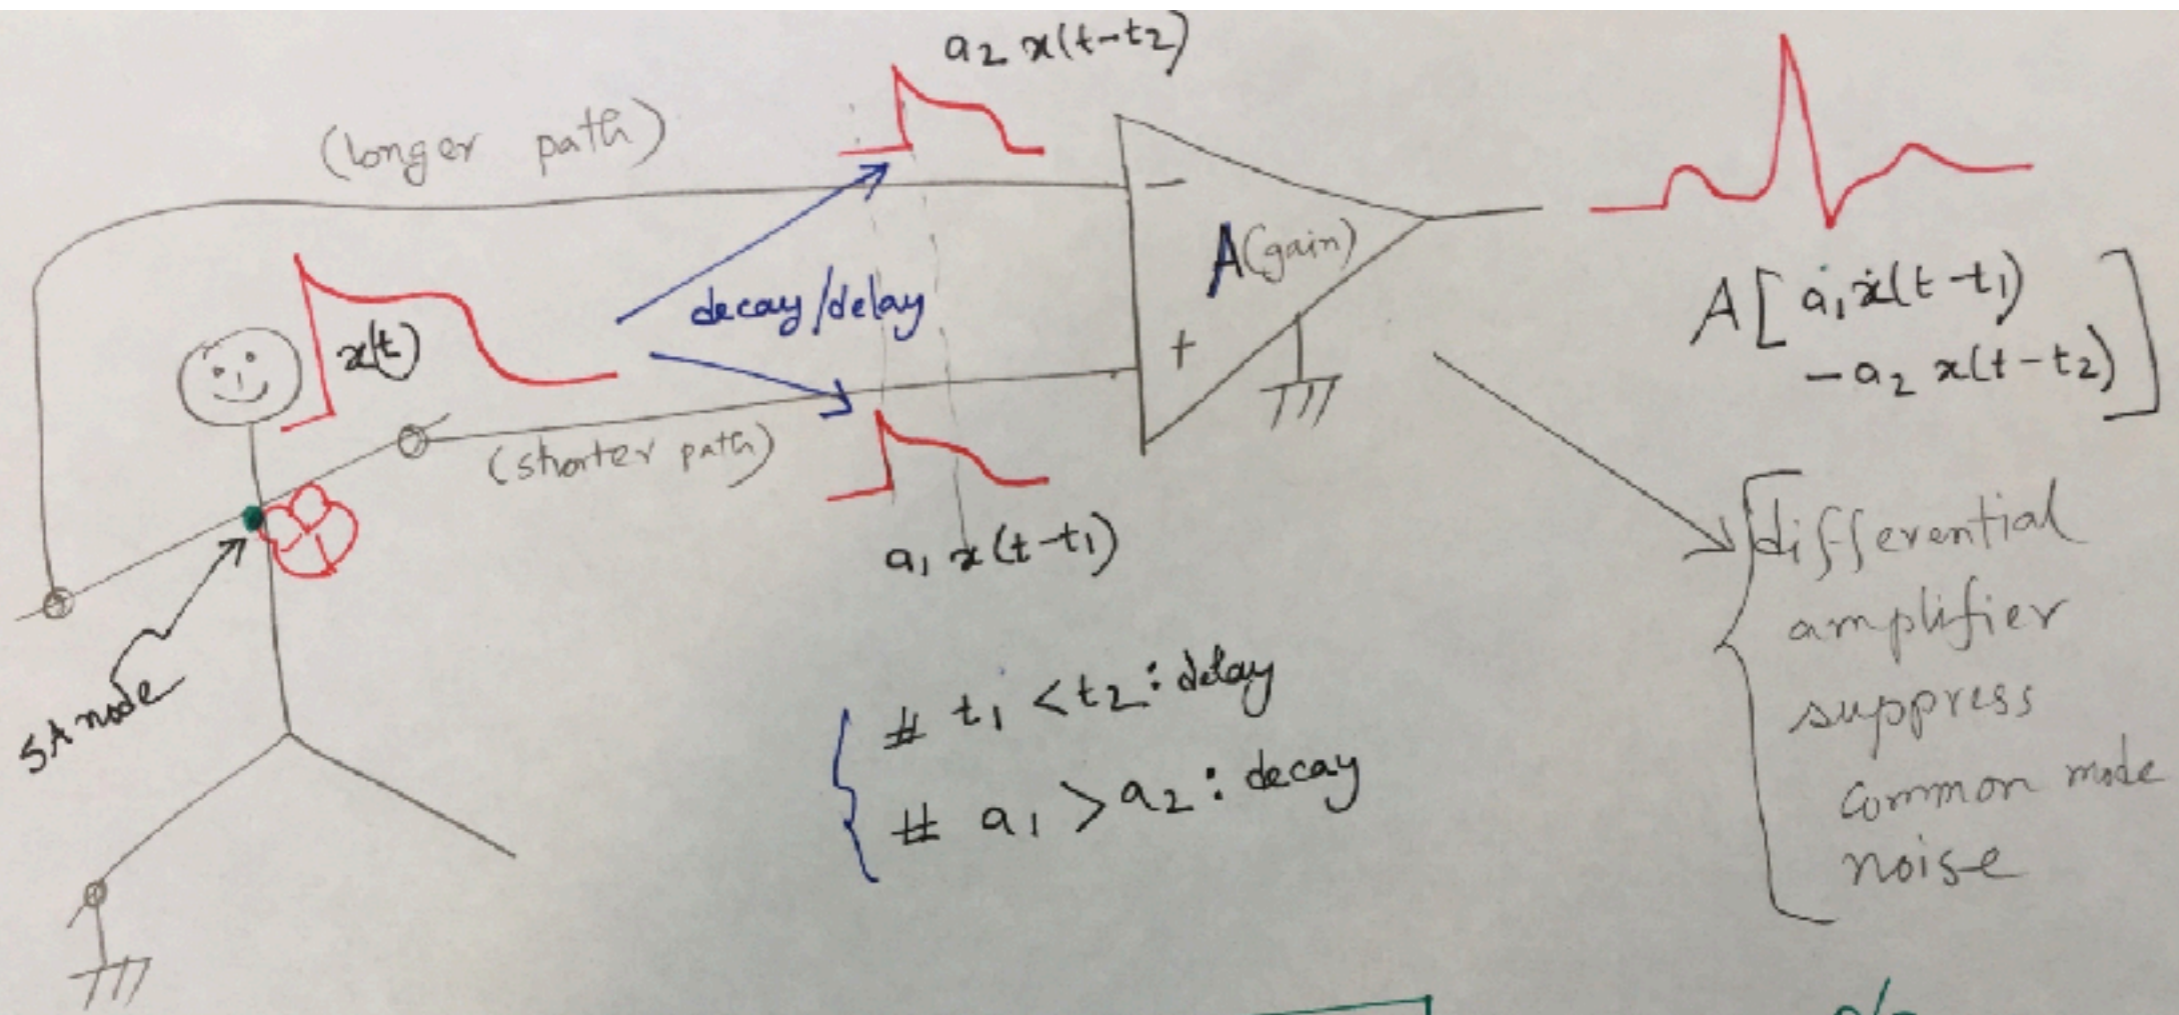 a2 x(t-t2)
(longer path)
−
A(gain)
x(t)
decay/delay
+
A[a1x(t-t1)
-a2 x(t-t2)]
(shorter path)
a1 x(t-t1)
SA node
# t1 < t2 : delay
# a1 > a2 : decay
differential
amplifier
suppress
common mode
noise